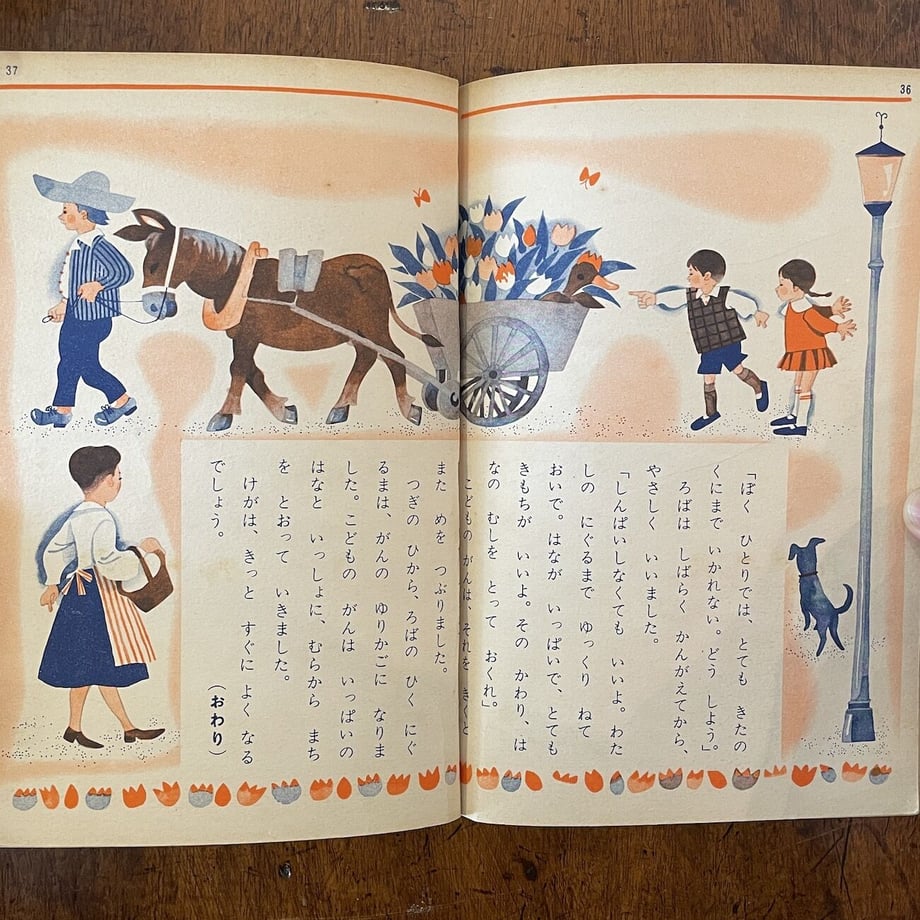 36
「ぼく　ひとりでは、とても　きたの
くにまで　いかれない。どう　しよう。」
ろばは　しばらく　かんがえてから、
やさしく　いいました。
「しんぱいしなくても　いいよ。わた
しの　にぐるまで　ゆっくり　ねて
おいで。はなが　いっぱいで、とても
きもちが　いいよ。その　かわり、は
なの　むしを　とって　おくれ。」
こどもの　がんは、それを　きくと
また　めを　つぶりました。
つぎの　ひから、ろばの　ひく　にぐ
るまは、がんの　ゆりかごに　なりま
した。こどもの　がんは　いっぱいの
はなと　いっしょに、むらから　まち
を　とおって　いきました。
けがは、きっと　すぐに　よく　なる
でしょう。
（おわり）
37